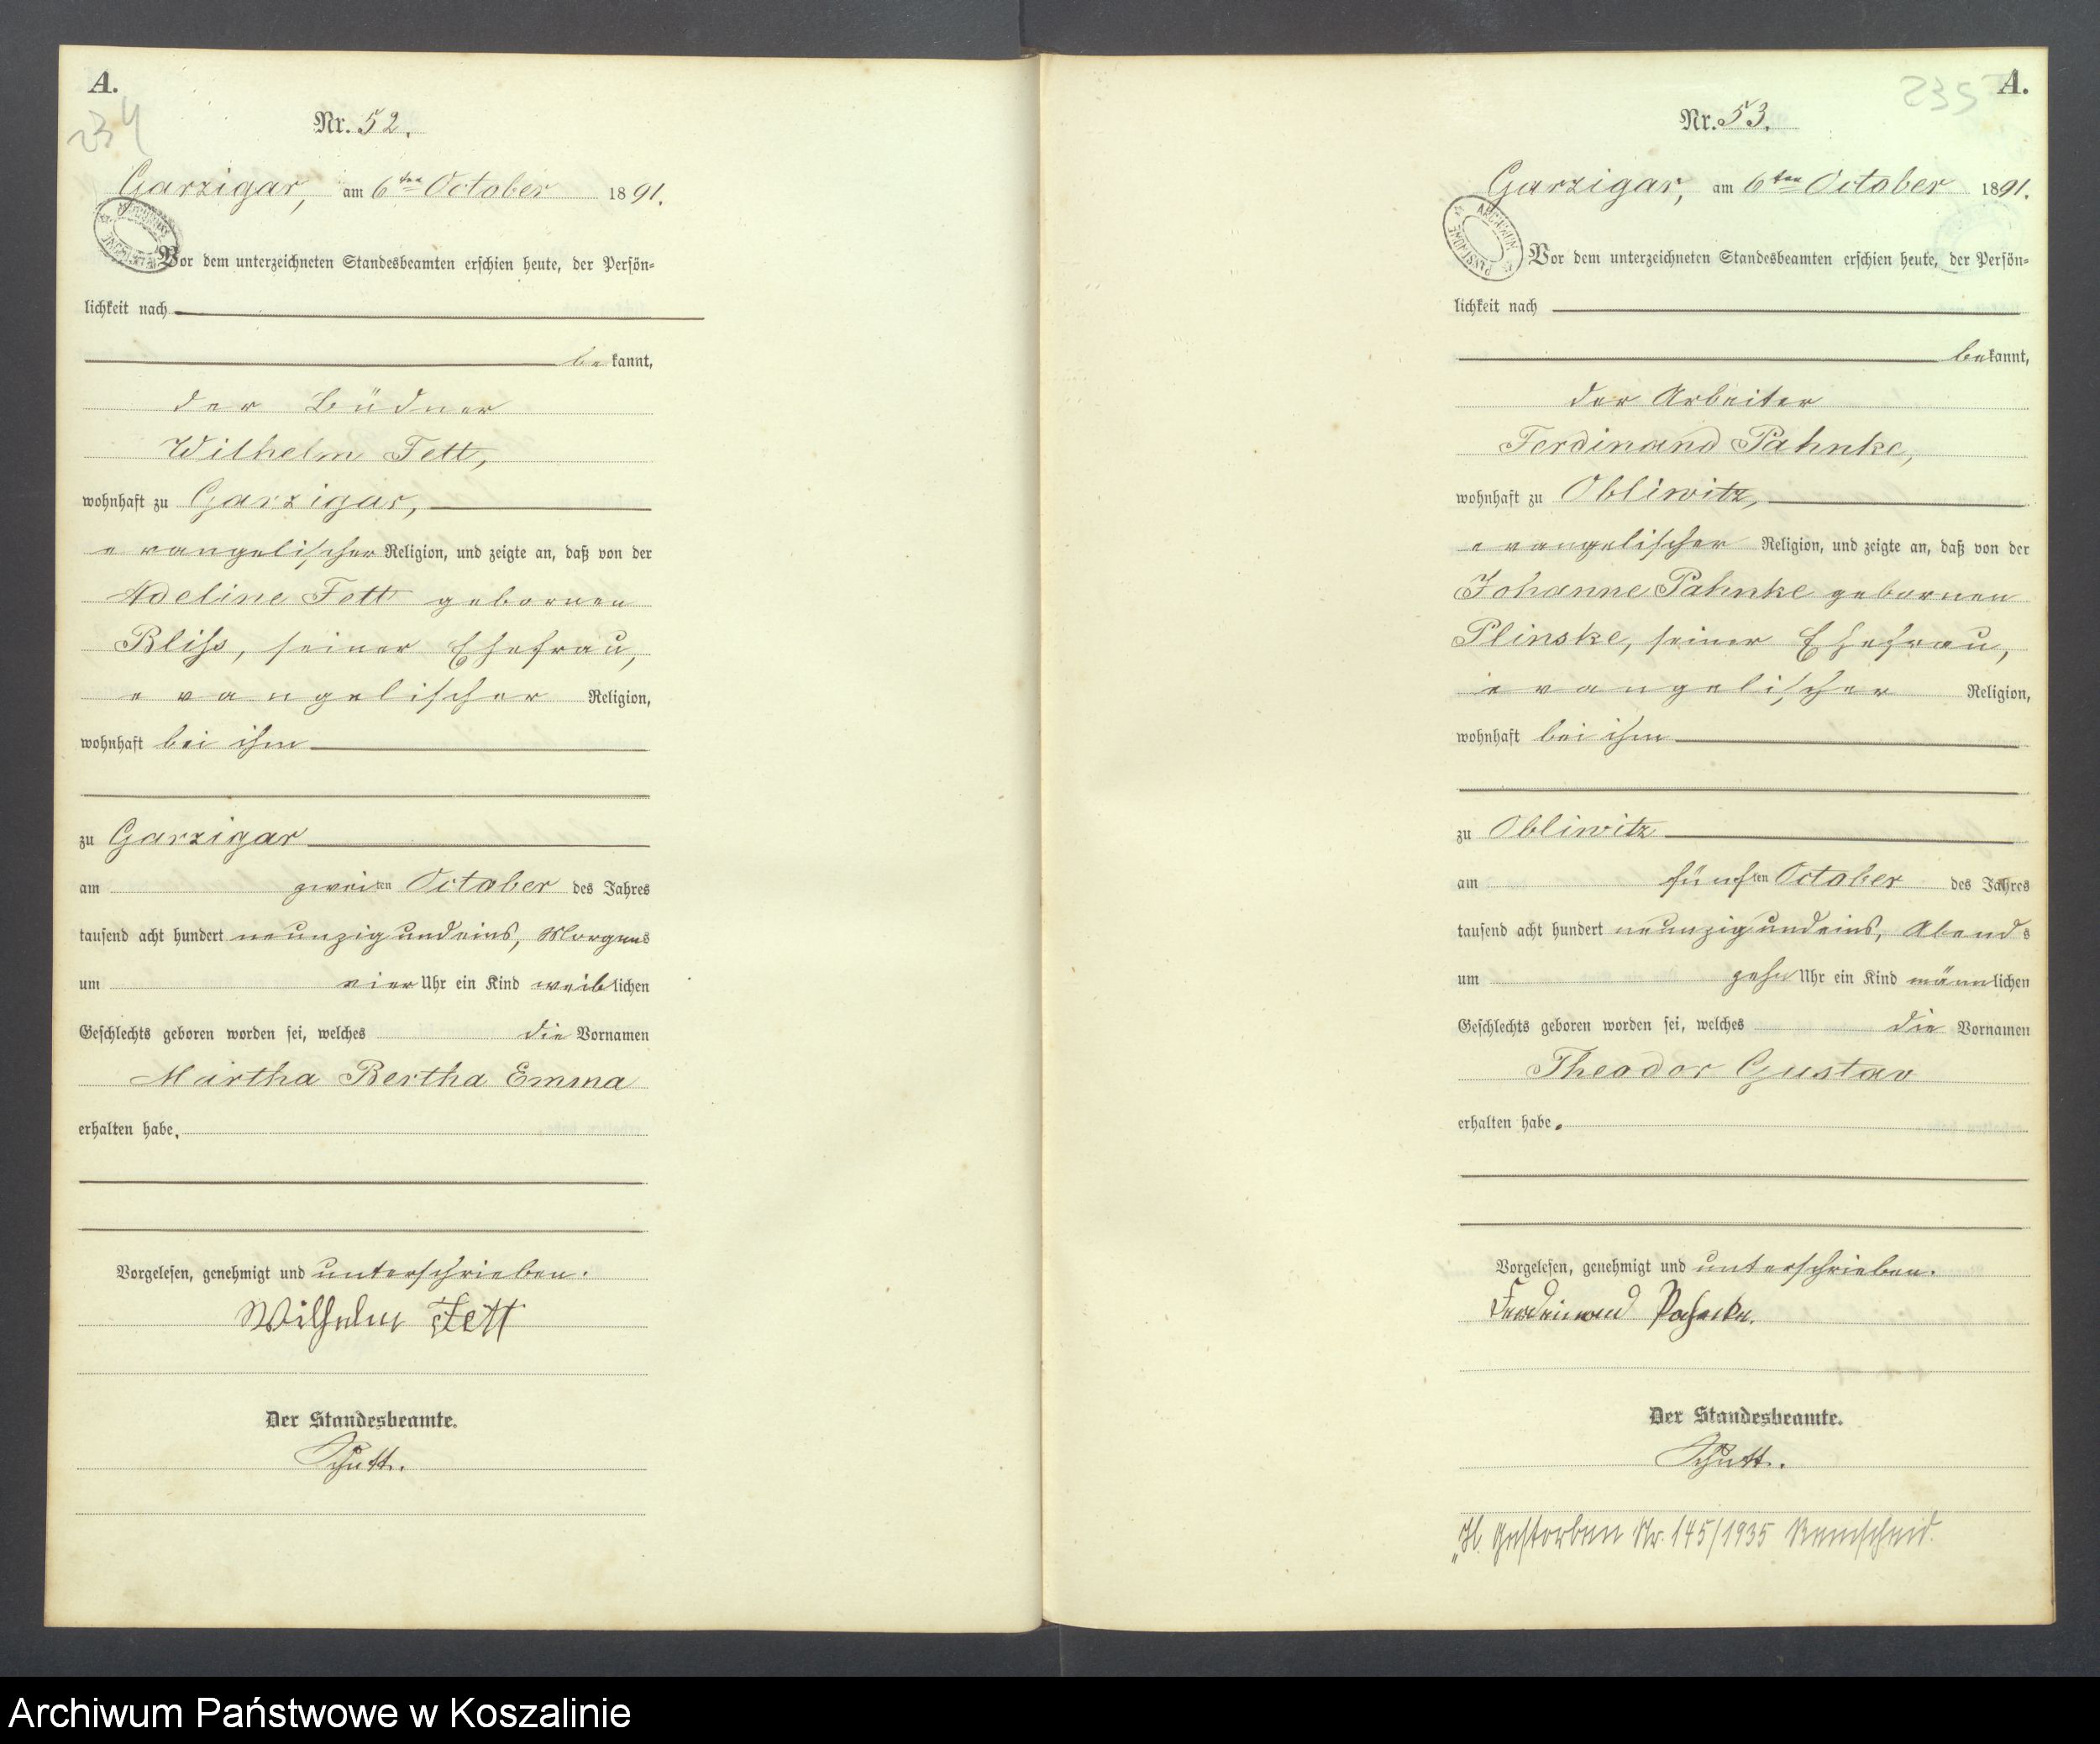 A.
234
Nr. 52.
Garzigar, am 6ten October 1891.
Vor dem unterzeichneten Standesbeamten erschien heute, der Persön=
lichkeit nach
bekannt,
der Büdner
Wilhelm Fett,
wohnhaft zu Garzigar,
evangelischer Religion, und zeigte an, daß von der
Adeline Fett gebornen
Bliss, seiner Ehefrau,
evangelischer Religion,
wohnhaft bei ihm
zu Garzigar
am zweiten October des Jahres
tausend acht hundert neunzig und eins, Morgens
um vier Uhr ein Kind weiblichen
Geschlechts geboren worden sei, welches die Vornamen
Martha Bertha Emma
erhalten habe.
Vorgelesen, genehmigt und unterschrieben.
Wilhelm Fett
Der Standesbeamte.
A.
235
Nr. 53.
Garzigar, am 6ten October 1891.
ARCHIWUM
Vor dem unterzeichneten Standesbeamten erschien heute, der Persön=
lichkeit nach
bekannt,
der Arbeiter
Ferdinand Pahnke,
wohnhaft zu Obliwitz,
evangelischer Religion, und zeigte an, daß von der
Johanne Pahnke gebornen
Plinske, seiner Ehefrau,
evangelischer Religion,
wohnhaft bei ihm
zu Obliwitz
am fünften October des Jahres
tausend acht hundert neunzig und eins, Abends
um zehn Uhr ein Kind männlichen
Geschlechts geboren worden sei, welches die Vornamen
Theodor Gustav
erhalten habe.
Vorgelesen, genehmigt und unterschrieben.
Ferdeinand Pahnke.
Der Standesbeamte.
gestorben Nr. 145/1935 Remscheid.
Archiwum Państwowe w Koszalinie